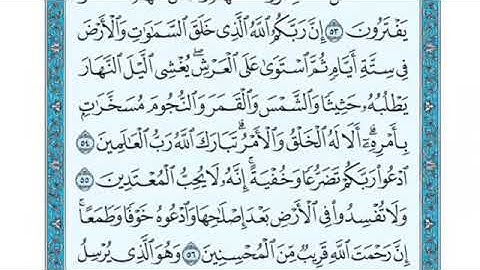 يَفْتَرُونَ ٥٣ إِنَّ رَبَّكُمُ ٱللَّهُ ٱلَّذِى خَلَقَ ٱلسَّمَٰوَٰتِ وَٱلْأَرْضَ
فِى سِتَّةِ أَيَّامٍ ثُمَّ ٱسْتَوَىٰ عَلَى ٱلْعَرْشِۖ يُغْشِى ٱلَّيْلَ ٱلنَّهَارَ
يَطْلُبُهُۥ حَثِيثًا وَٱلشَّمْسَ وَٱلْقَمَرَ وَٱلنُّجُومَ مُسَخَّرَٰتٍۭ
بِأَمْرِهِۦٓۗ أَلَا لَهُ ٱلْخَلْقُ وَٱلْأَمْرُۗ تَبَارَكَ ٱللَّهُ رَبُّ ٱلْعَٰلَمِينَ ٥٤
ٱدْعُوا۟ رَبَّكُمْ تَضَرُّعًا وَخُفْيَةًۚ إِنَّهُۥ لَا يُحِبُّ ٱلْمُعْتَدِينَ ٥٥
وَلَا تُفْسِدُوا۟ فِى ٱلْأَرْضِ بَعْدَ إِصْلَٰحِهَا وَٱدْعُوهُ خَوْفًا وَطَمَعًاۚ
إِنَّ رَحْمَتَ ٱللَّهِ قَرِيبٌ مِّنَ ٱلْمُحْسِنِينَ ٥٦ وَهُوَ ٱلَّذِى يُرْسِلُ